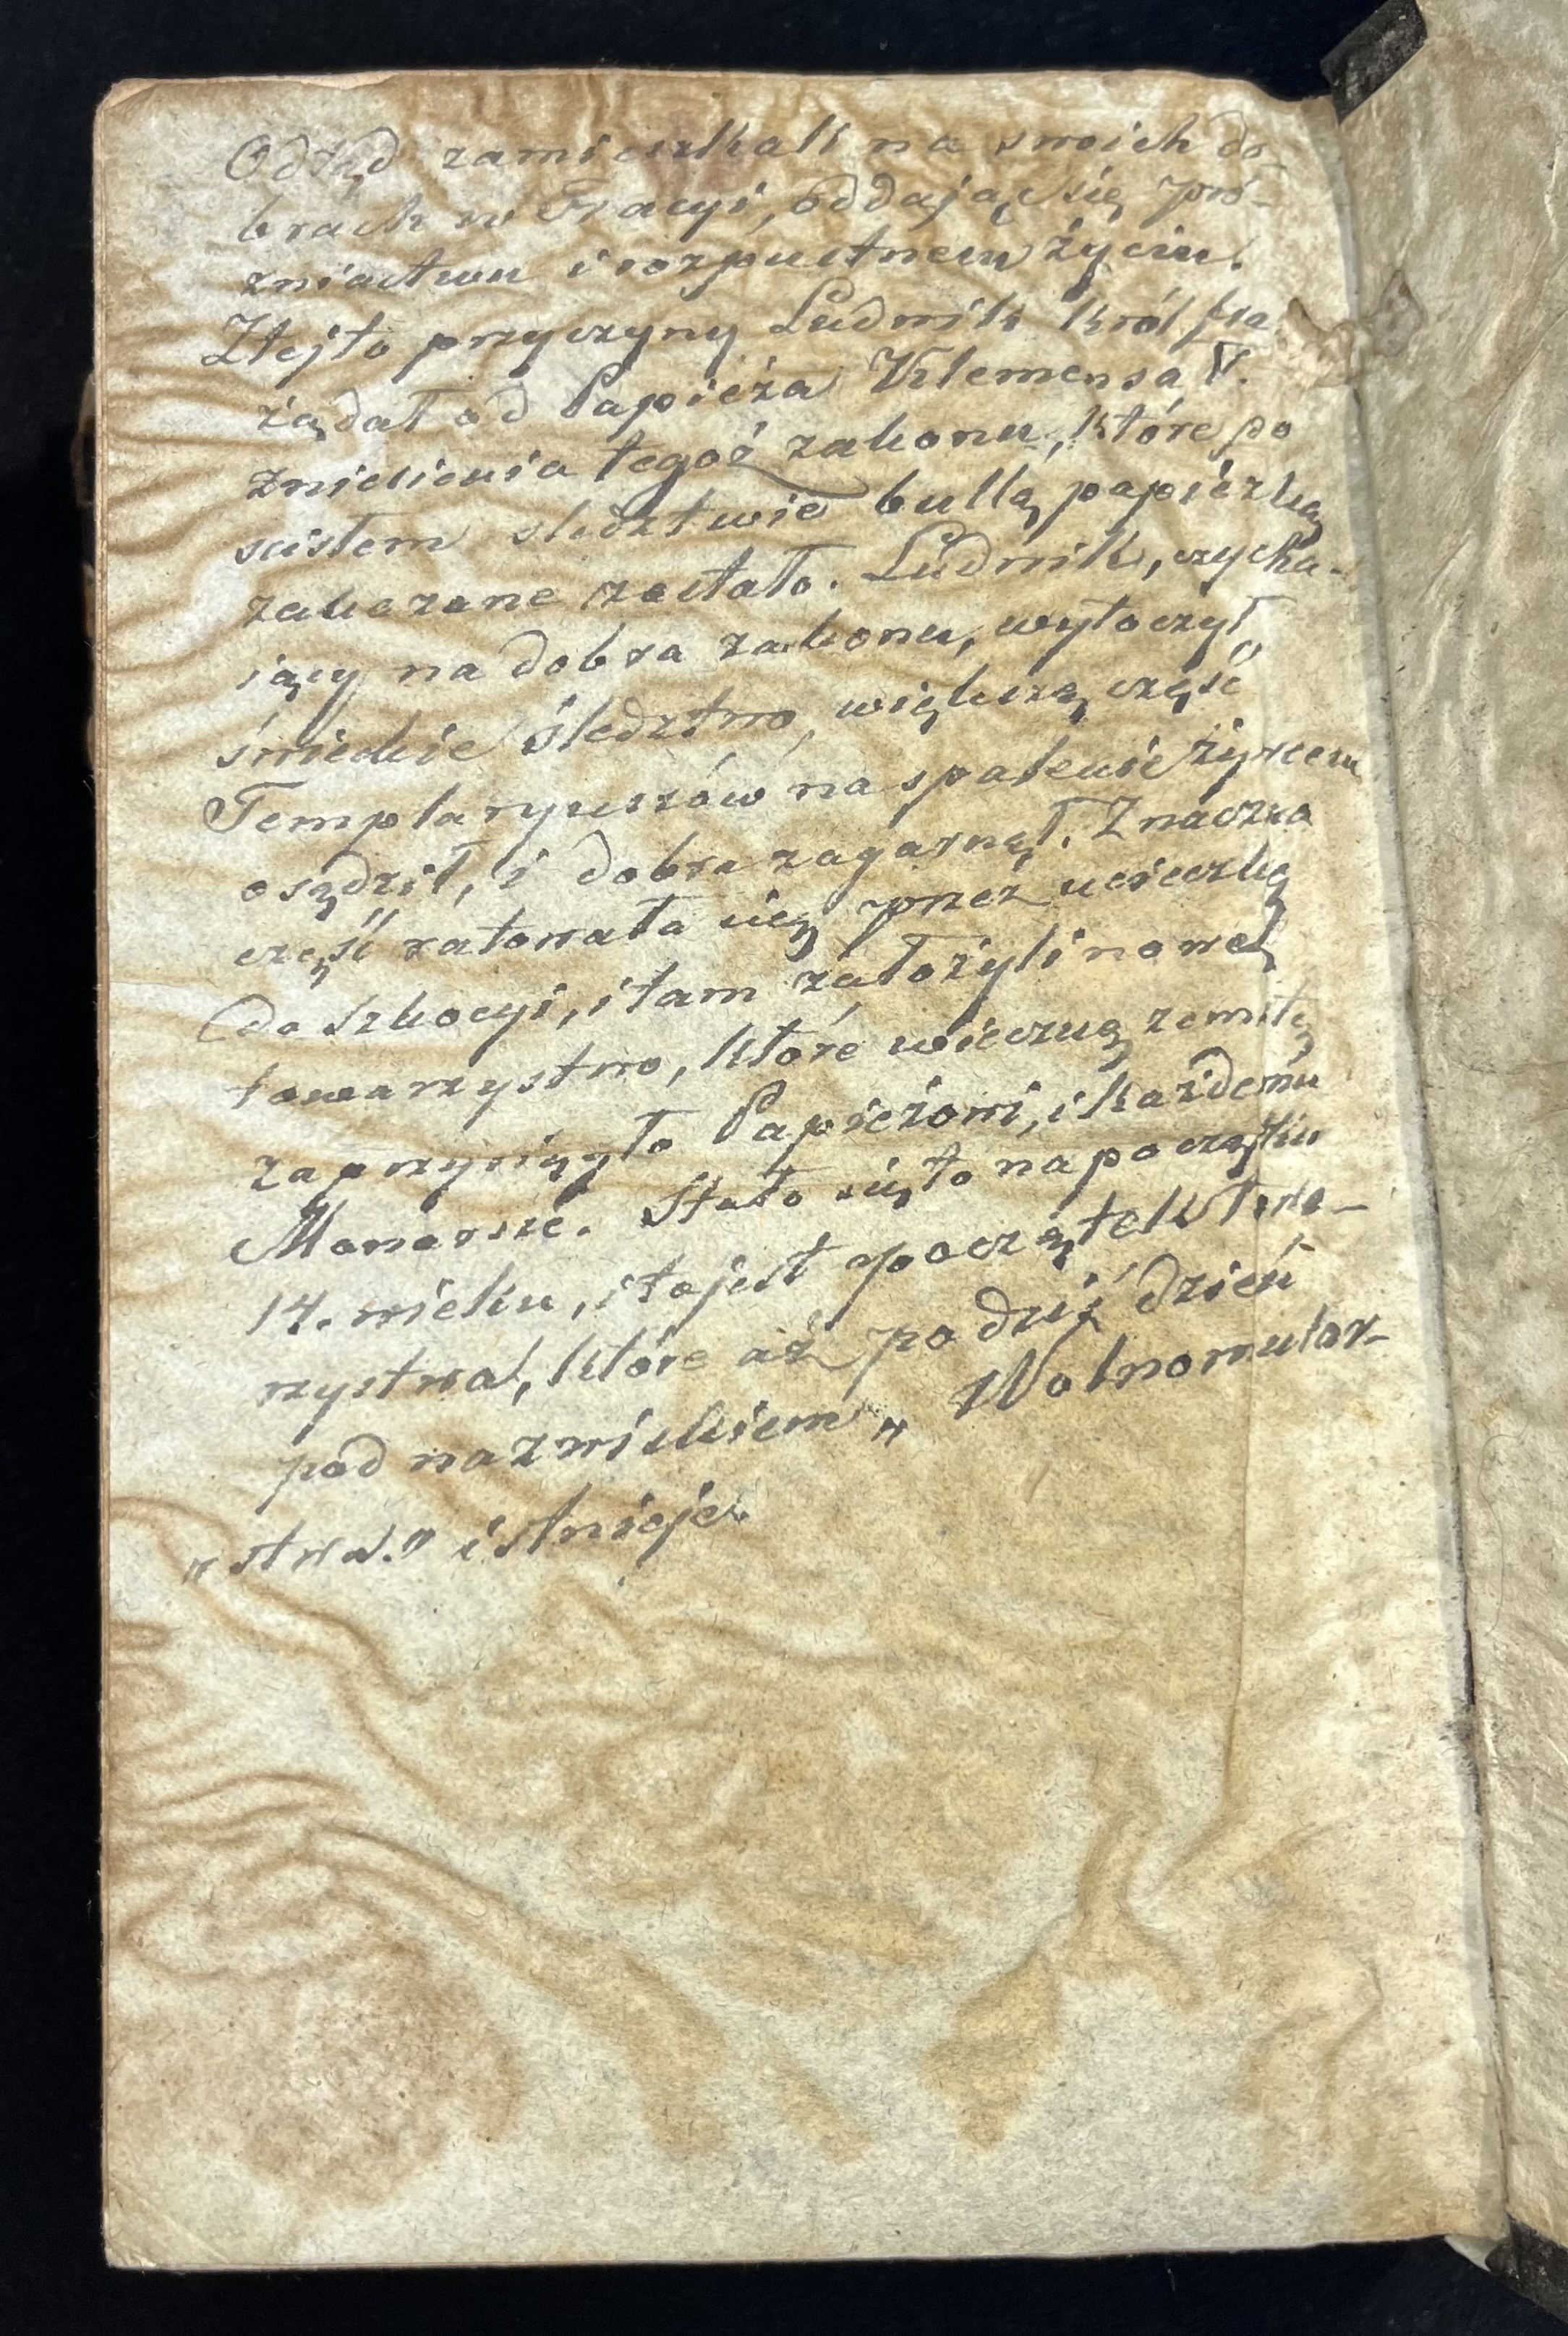 Odtąd zamieszkali na swoich do-
brach w Fracyi, oddając się pró-
zniactwu i rozpustnemu życiu.
Ztejto przyczyny Ludwik król fra.
żądał od Papieża Klemensa V.
zniesienia tegoż zakonu, które po
scisłem sledztwie bullą papiezką
zakazane zostało. Ludwik, czycha-
iący na dobra zakonu, wytoczył
świeckie śledztwo, większą część
Templaryuszów na spalenie żywcem
osądził, i dobra zagarnął. Znaczna
część ratowała się przez ucieczkę
do Szkocyi, i tam założyli nowe
towarzystwo, które wieczną zemstę
zaprzysięgło Papieżowi, i każdemu
Monarsze. Stało się to na początku
14. wieku, i to jest początek Towa-
rzystwa, które aż po dziś dzień
pod nazwiskiem „Wolnomular-
„stwa." istnieje.